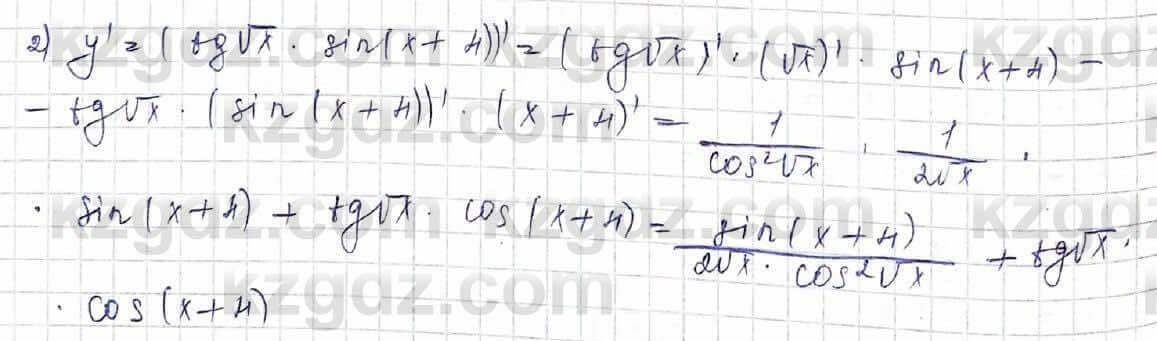 2) y' = (tg√x · sin(x+4))' = (tg√x)' · (√x)' · sin(x+4) −
− tg√x · (sin(x+4))' · (x+4)' = 1/cos²√x · 1/2√x ·
· sin(x+4) + tg√x · cos(x+4) = sin(x+4)/2√x · cos²√x + tg√x ·
· cos(x+4)
kzgdz.com